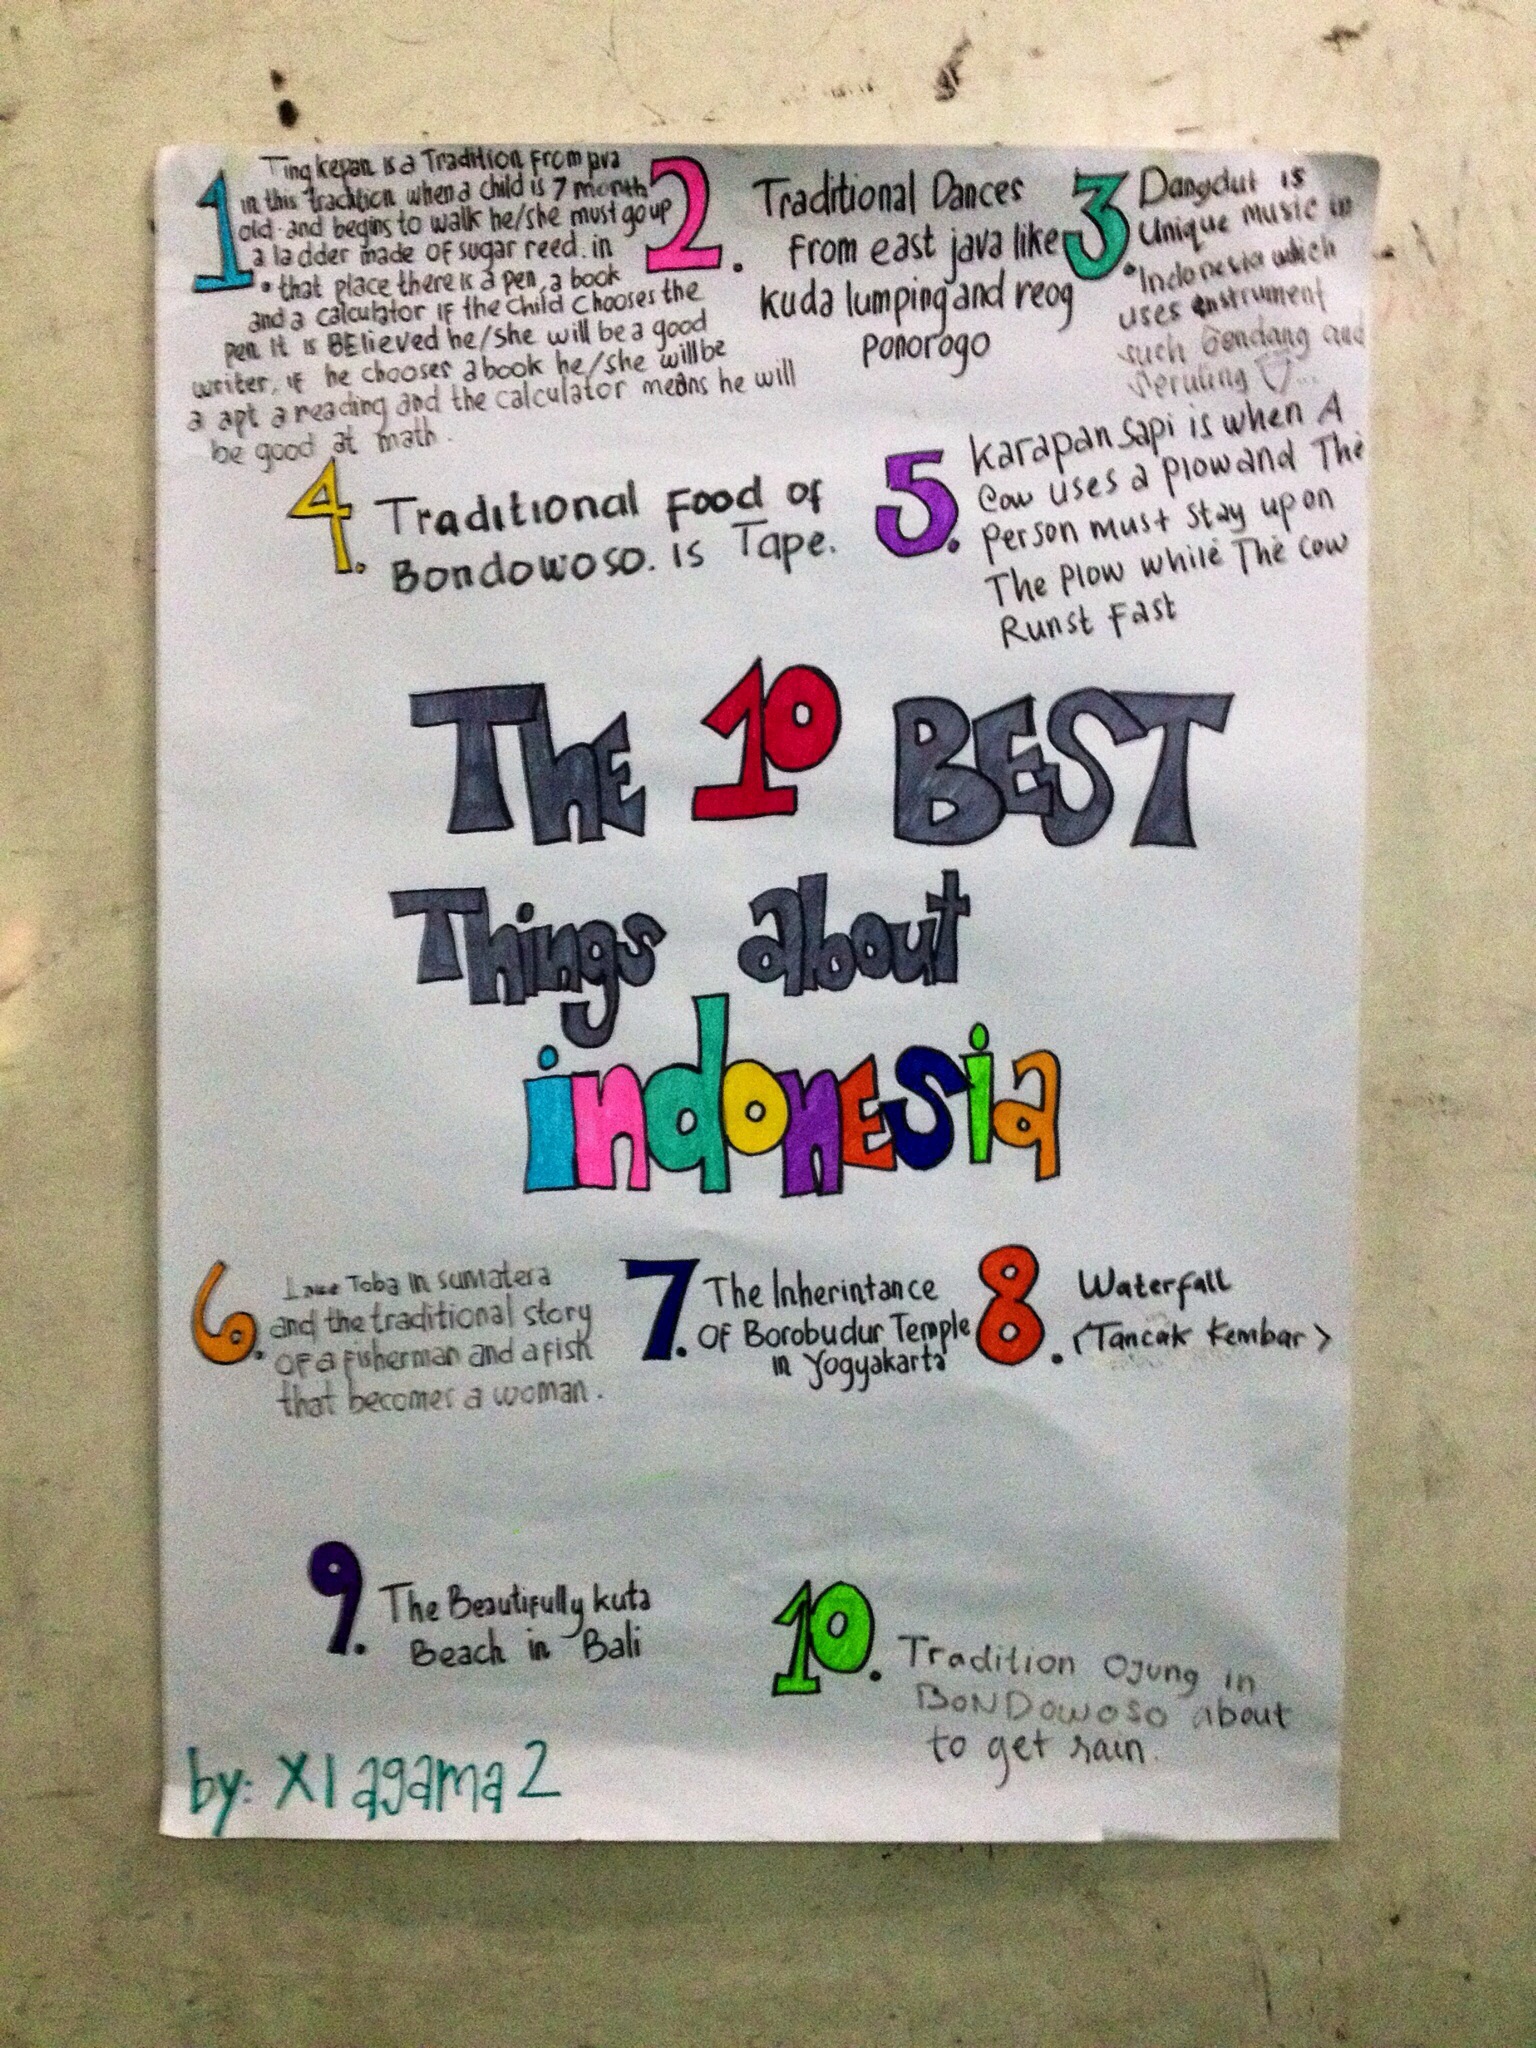 1. Tingkepan is a Tradition From java
in this tradition when a child is 7 month
old and begins to walk he/she must go up
a ladder made of sugar reed. in
that place there is a pen, a book
and a calculator IF the child chooses the
pen. It is BElieved he/she will be a good
writer, if he chooses a book he/she will be
a apt a reading and the calculator means he will
be good at math.
2. Traditional Dances
From east java like
kuda lumping and reog
ponorogo
3. Dangdut is
Unique music in
Indonesia which
uses enstrument
such Gendang and
Seruling
4. Traditional Food of
Bondowoso. is Tape.
5. Karapan sapi is when A
Cow uses a plow and The
person must stay upon
The plow while The cow
Runst Fast
The 10 BEST
Things about
indonEsia
6. Lake Toba in sumatera
and the traditional story
OF a fisherman and a fish
that becomes a woman.
7. The Inherintance
OF Borobudur Temple
in Yogyakarta
8. Waterfall
(Tancak Kembar)
9. The Beautifully kuta
Beach in Bali
10. Tradition Ojung in
BoNDowoso about
to get rain.
by: XI agama 2